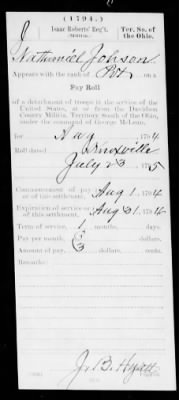 (1794.)
J Isaac Roberts' Reg't. Ter. So. of
(MILITIA.) the Ohio.
Nathaniel Johnson
Appears with the rank of Pvt on a
Pay Roll
of a detachment of troops in the service of the
United States, at or from the Davidson
County Militia, Territory South of the Ohio,
under the command of George McLean,
for Aug 1794
Roll dated Knoxville
July 23 1795
Commencement of pay
or of this settlement, Aug 1 1794
Expiration of service or
of this settlement, Aug 31 1794
Term of service, 1 months, days.
Pay per month, 3 dollars.
Amount of pay, 3 dollars, cents.
Remarks:
J. B. Hyatt